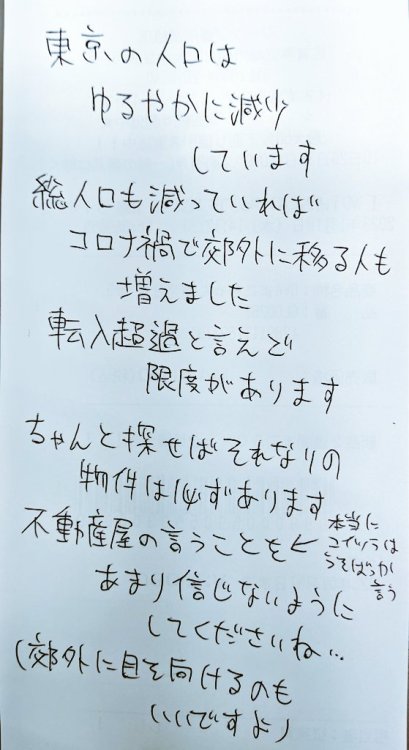 東京の人口は
ゆるやかに減少
しています
総人口も減っていれば
コロナ禍で郊外に移る人も
増えました
転入超過と言えど
限度があります
ちゃんと探せばそれなりの
物件は必ずあります
不動産屋の言うことを←
本当に
コイツらは
うそばっか
言う
あまり信じないように
してくださいね…
(郊外に目を向けるのも
いいですよ)